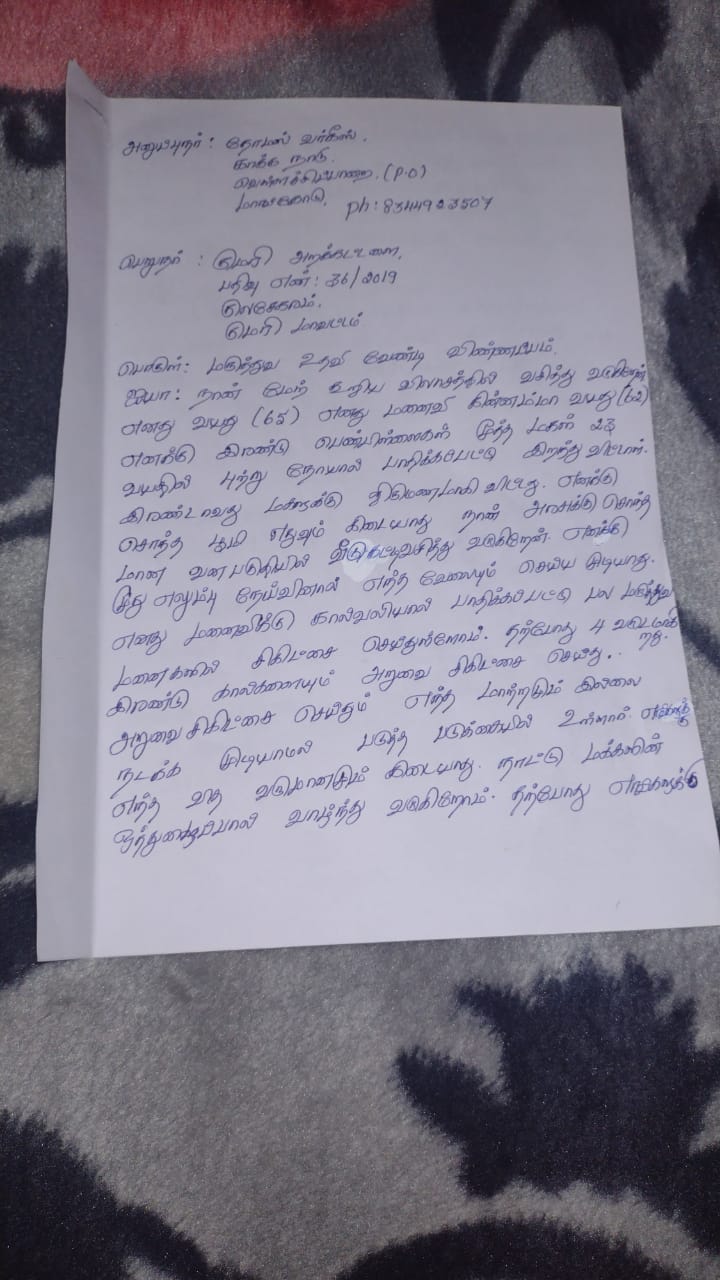 அனுப்புநர் : தோமஸ் வர்கீஸ்.
காக்க நாடு.
வெள்ளச்சிப்பாறை. (P.O)
மாங்கோடு. ph: 8344923507
பெறுநர் : குமரி அறக்கட்டளை.
பதிவு எண்: 36/2019
குலசேகரம்.
குமரி மாவட்டம்
பொருள்: மருத்துவ உதவி வேண்டி விண்ணப்பம்.
ஐயா: நான் மேற் கூறிய விலாசத்தில் வசித்து வருகிறேன்
எனது வயது (65) எனது மனைவி சின்னம்மா வயது (62)
எனக்கு இரண்டு பெண்பிள்ளைகள் மூத்த மகள் 23
வயதில் புற்று நோயால் பாதிக்கப்பட்டு இறந்து விட்டாள்.
இரண்டாவது மகளுக்கு திருமணமாகி விட்டது. எனக்கு
சொந்த பூமி எதுவும் கிடையாது நான் அரசுக்கு சொந்த
மான வன பகுதியில் வீடு கட்டி வசித்து வருகிறேன். எனக்கு
மூது எலும்பு தேய்வினால் எந்த வேலையும் செய்ய முடியாது.
எனது மனைவிக்கு கால்வலியால் பாதிக்கப்பட்டு பல மருத்துவ
மனைகளில் சிகிட்சை செய்துள்ளோம். தற்போது 4 வருடமாகி
இரண்டு கால்களையும் அறுவை சிகிட்சை செய்து..
அறுவை சிகிட்சை செய்தும் எந்த மாற்றமும் இல்லை
நடக்க முடியாமல் படுத்த படுக்கையில் உள்ளார். எனக்கு
எந்த வித வருமானமும் கிடையாது. நாட்டு மக்களின்
ஒத்துழைப்பால் வாழ்ந்து வருகிறோம். தற்போது எங்களுக்கு